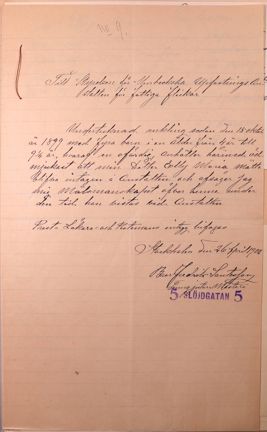 no 9.
Till Styrelsen för Murbeckska Uppfostrings An-
stalten för fattiga flickor
Undertecknad enkling sedan den 18 oktober
år 1899 med fyra barn i en ålder från 4 år till
9½ år, hvaraf en ofärdig, anhåller härmed öd-
mjukast att min Dotter Maria måtte
blifva intagen å Anstalten och afsäger jag
mig Målsmanskapet öfver henne under
den tid hon vistas vid Anstalten
Prest, Läkare och intyg bifogas
Stockholm den 26 April 1900
Fredrik
5 SLÖJDGATAN 5